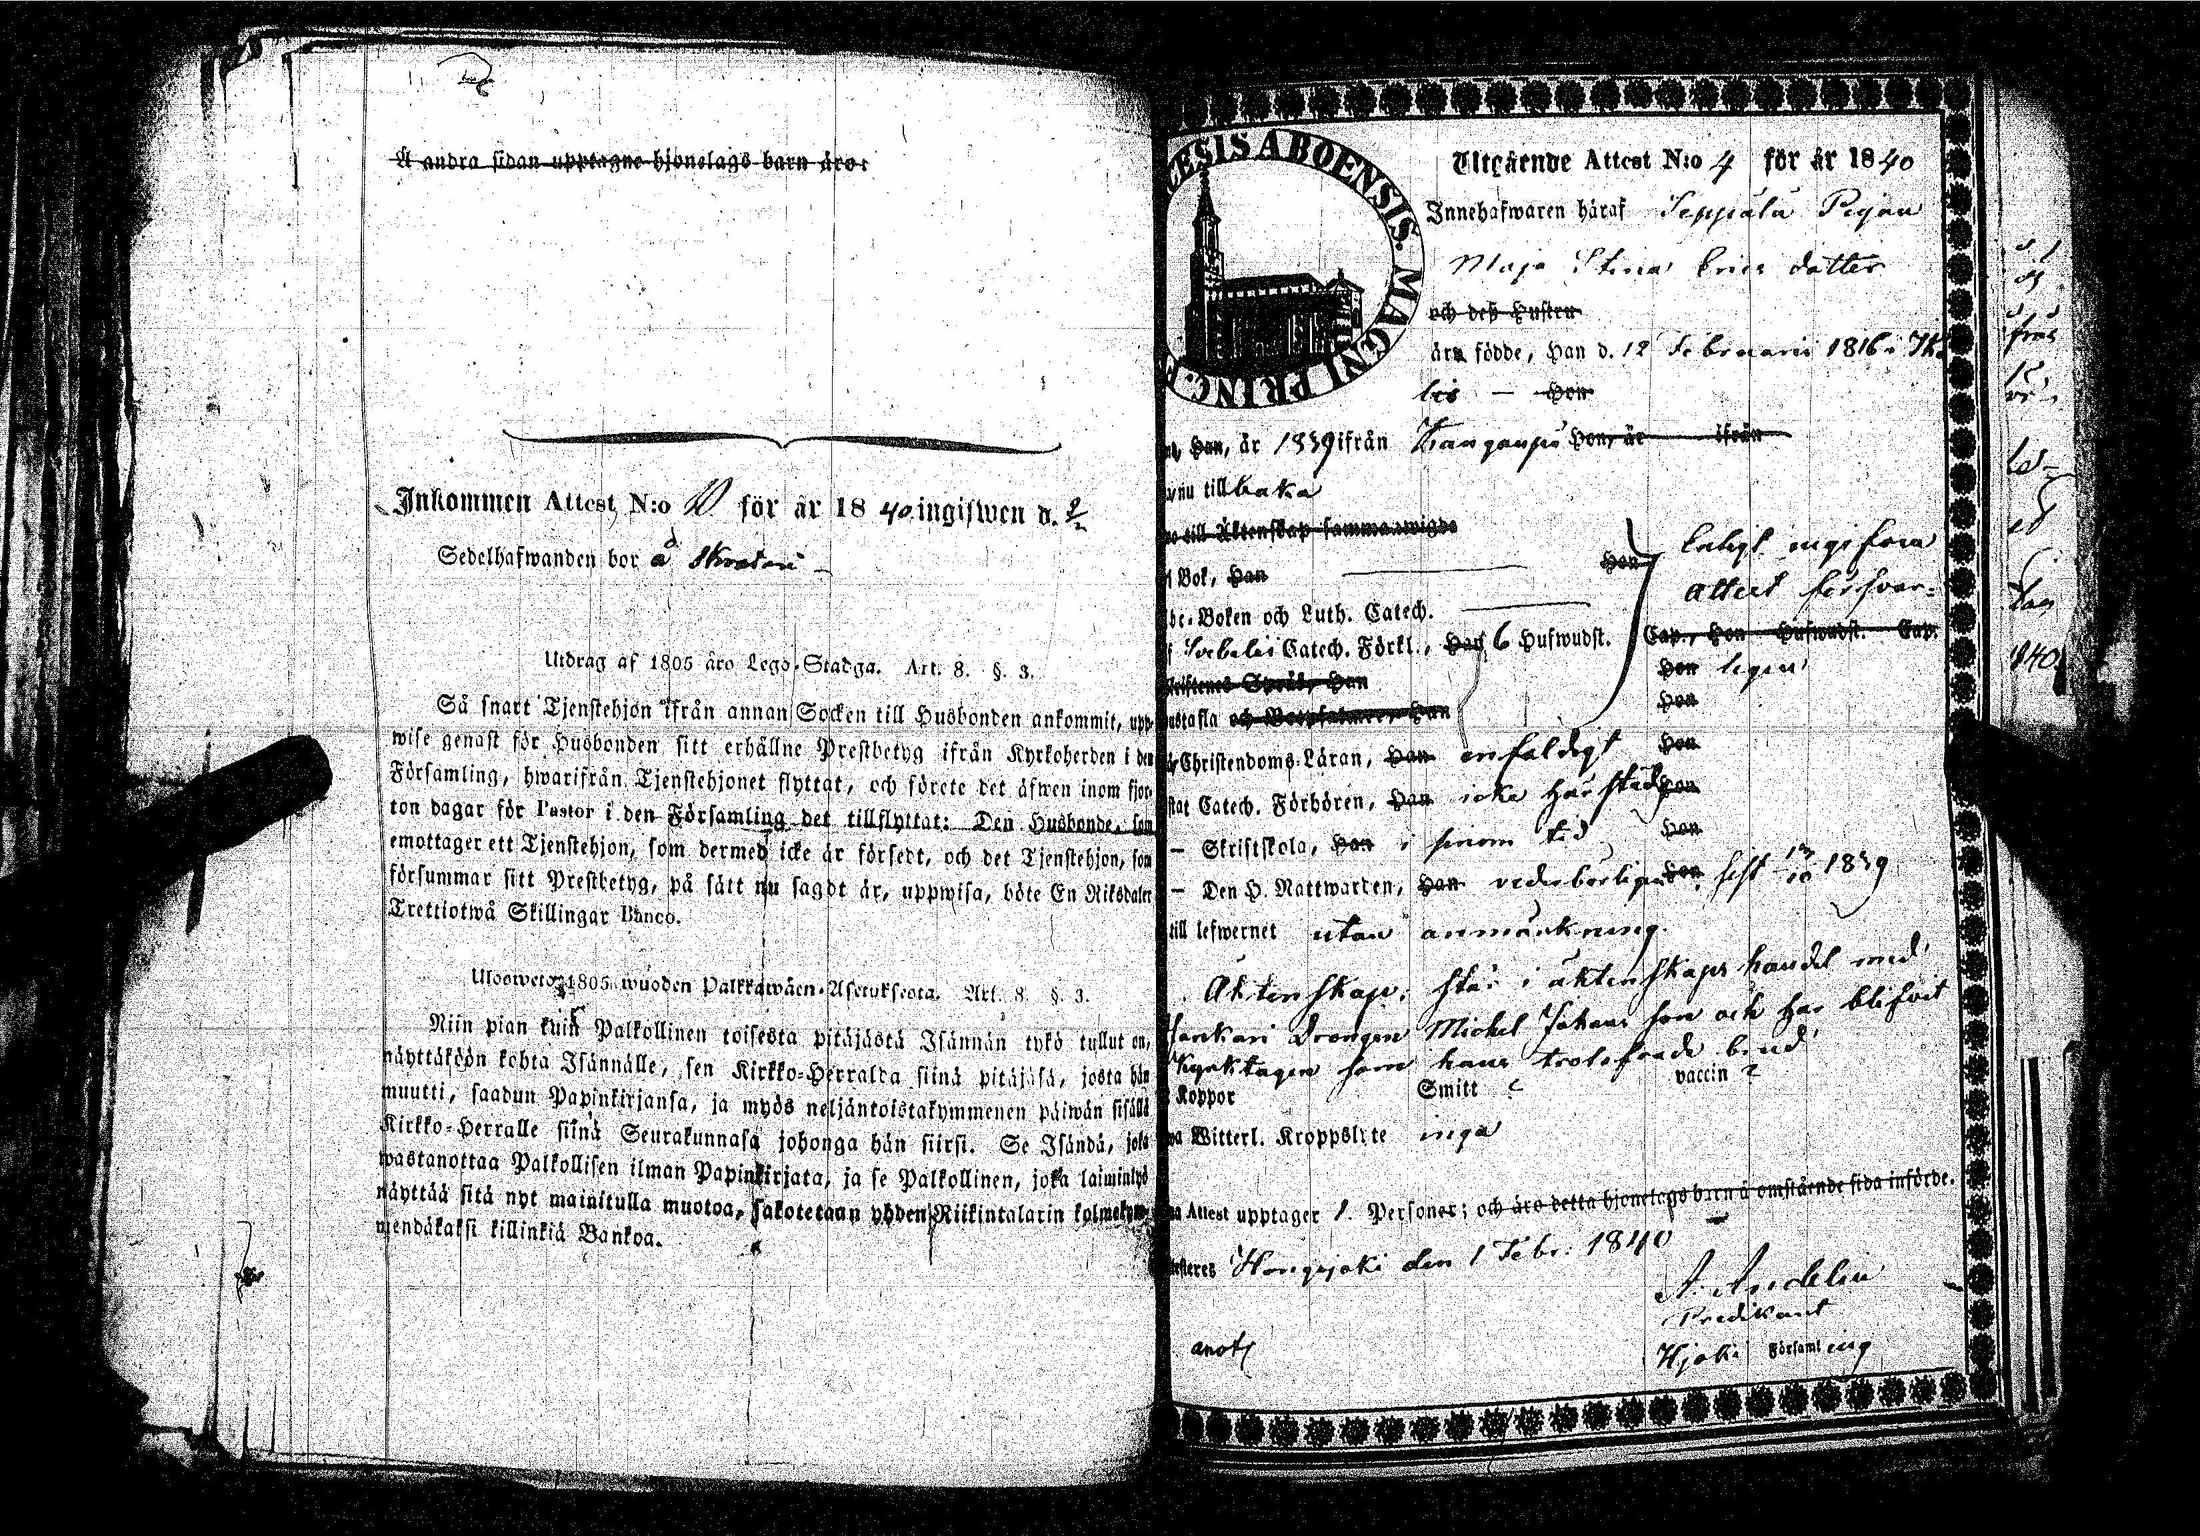 Å andra sidan upptagne hjonelags barn äro:
Inkommen Attest N:o 10 för år 1840 ingifwen d. 2/2
Sedelhafwanden bor å
Utdrag af 1805 års Lego-Stadga. Art. 8. §. 3.
Så snart Tjenstehjon ifrån annan Socken till Husbonden ankommit, upp-
wise genast för Husbonden sitt erhållne Prestbetyg ifrån Kyrkoherden i den
Församling, hwarifrån Tjenstehjonet flyttat, och förete det äfwen inom fjor-
ton dagar för Pastor i den Församling det tillflyttat: Den Husbonde, som
emottager ett Tjenstehjon, som dermed icke är försedt, och det Tjenstehjon, som
försummar sitt Prestbetyg, på sätt nu sagdt är, uppwisa, böte En Riksdaler
Trettiotwå Skillingar Banco.
Ulosweto 1805 wuoden Palkkawäen-Asetuksesta. Art. 8. §. 3.
Niin pian kuin Palkollinen toisesta pitäjästä Isännän tykö tullut on,
näyttäköön kohta Isännälle, sen Kirkko-Herralda siinä pitäjäsä, josta hän
muutti, saadun Papinkirjansa, ja myös neljäntoistakymmenen päiwän sisällä
Kirkko-Herralle siinä Seurakunnasa johonga hän siirsi. Se Isändä, joka
wastanottaa Palkollisen ilman Papinkirjata, ja se Palkollinen, joka laiminlyö
näyttää sitä nyt mainitulla muotoa, sakotetaan yhden Riikintalarin kolmekym-
mendäkaksi killinkiä Bankoa.
ECESIS ABOENSIS. MAGNI PRINC. F
Utgående Attest N:o 4 för år 1840
Innehafwaren häraf Seppälä Pigan
Maja Stina Erics dotter
och deß Hustru
äro födde, Han d. 12 Februarii 1816 i
lis — Hon
Han, år 1839 ifrån Kanganpä Hon, år ifrån
nu tillbaka
till Äktenskap sammanwigde
i Bok, Han Hon Enligt ingifwen
Attest försvar-
be-Boken och Luth. Catech.
Svebelii Catech. Förkl., Han 6 Hufwudst. Cap., Hon Hufwudst. Cap.
Hon ligen
Skriftenes Språk, Han
Hustafla och Botpsalmer, Han Hon
Christendoms-Läran, Han enfaldigt Hon
Catech. Förhören, Han icke här städs Hon
— Skriftskola, Han i sinom tid Hon
— Den H. Nattwarden, Han vederbörligen Hon sist 1839
till lefwernet utan anmärkning.
Äktenskap, står i äktenskaps handel med
Drengen Michel Johans son och har blifvit
Kyrktagen som hans trolofvade brud
Koppor Smitt ? vaccin ?
Witterl. Kroppslyte inga
Attest upptager 1 Personer; och äro detta hjonelags barn å omstående sida införde.
Hongojoki den 1 Febr: 1840
A. Andelin
Predikant
Hjoki Församling
anot